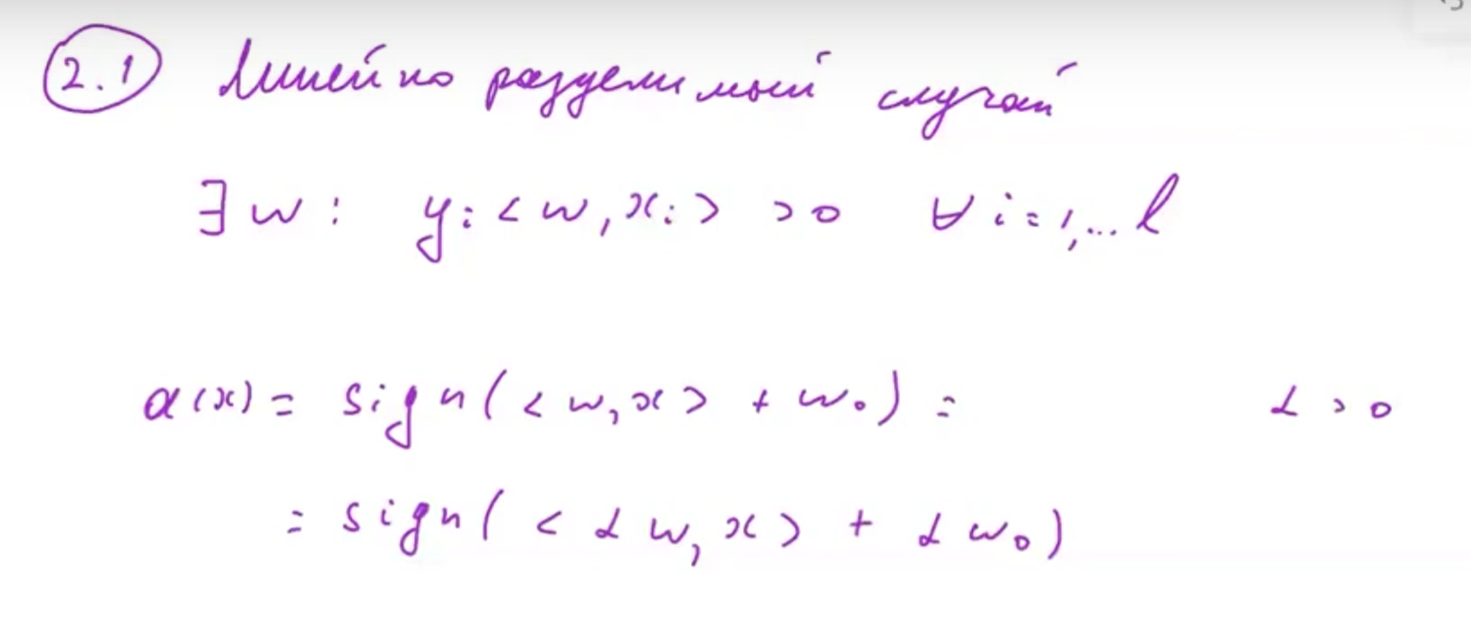 2.1 Линейно разделимый случай
∃ w : yᵢ <w, xᵢ> > 0 ∀ i = 1, ... l
a(x) = sign(<w, x> + w₀) = α > 0
= sign(<αw, x> + αw₀)